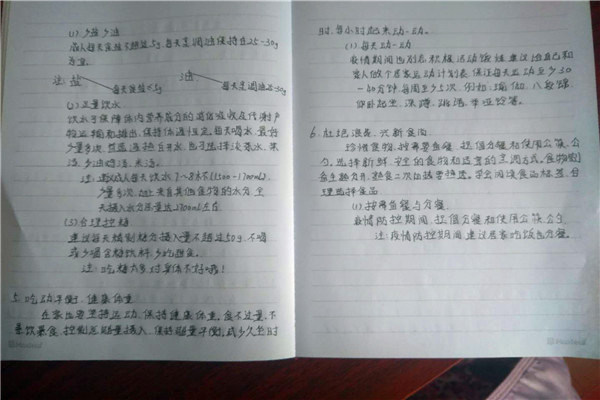 (1). 少盐少油
成人每天食盐不超过5g,每天烹调油保持在25-30g
为宜。
注:盐 油
每天食盐<5g 每天烹调油25-30g
(2) 足量饮水
饮水可保障体内营养成分的消化吸收及代谢产
物运输和排出,保持体液恒定。每天喝水,最好
少量多次,饮温热白开水,也可选择淡茶水、果
汁。
注:建议成人每天饮水7~8杯(1500-1700mL)
少量多次,加上来自其他食物的水分,全
天摄入水分总量达2700mL左右
(3)合理控糖
建议每天糖制糖分摄入量不超过50g,不喝
或少喝含糖饮料,少吃甜食。
注:吃糖太多对身体不好哦!
5. 吃动平衡、健康体重
在家也要坚持运动,保持健康体重。食不过量,不
暴饮暴食,控制总能量摄入,保持能量平衡,减少久坐时
时,每小时起来动一动。
(1). 每天动一动
疫情期间也别忘积极运动锻炼,建议独自己和
家人做个居家运动计划表,保证每天运动至少30
-60分钟,每周至少5次。例如:瑜伽、八段锦
仰卧起坐、深蹲、跳绳、平板撑等。
6. 杜绝浪费、兴新食尚
珍惜食物,按需要备餐,提倡分餐和使用公筷、公
勺。选择新鲜、安全的食物和适宜的烹调方式。食物制
备生熟分开,熟食二次加热要热透。学会阅读食品标签,合
理选择食品
(1). 按需备餐与分餐
疫情防控期间,提倡分餐和使用公筷公勺
注:疫情防控期间建议居家吃饭也分餐。